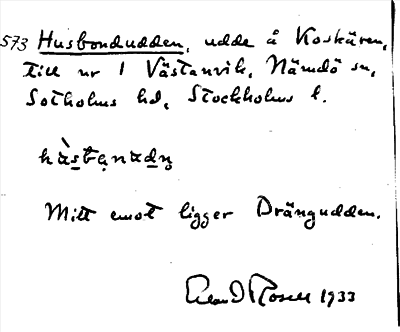 573 Husbondudden, udde å Koskären,
till nr 1 Västanvik, Nämdö sn,
Sotholms hd, Stockholms l.
hàsbanadn̥
Mitt emot ligger Drängudden.
1933